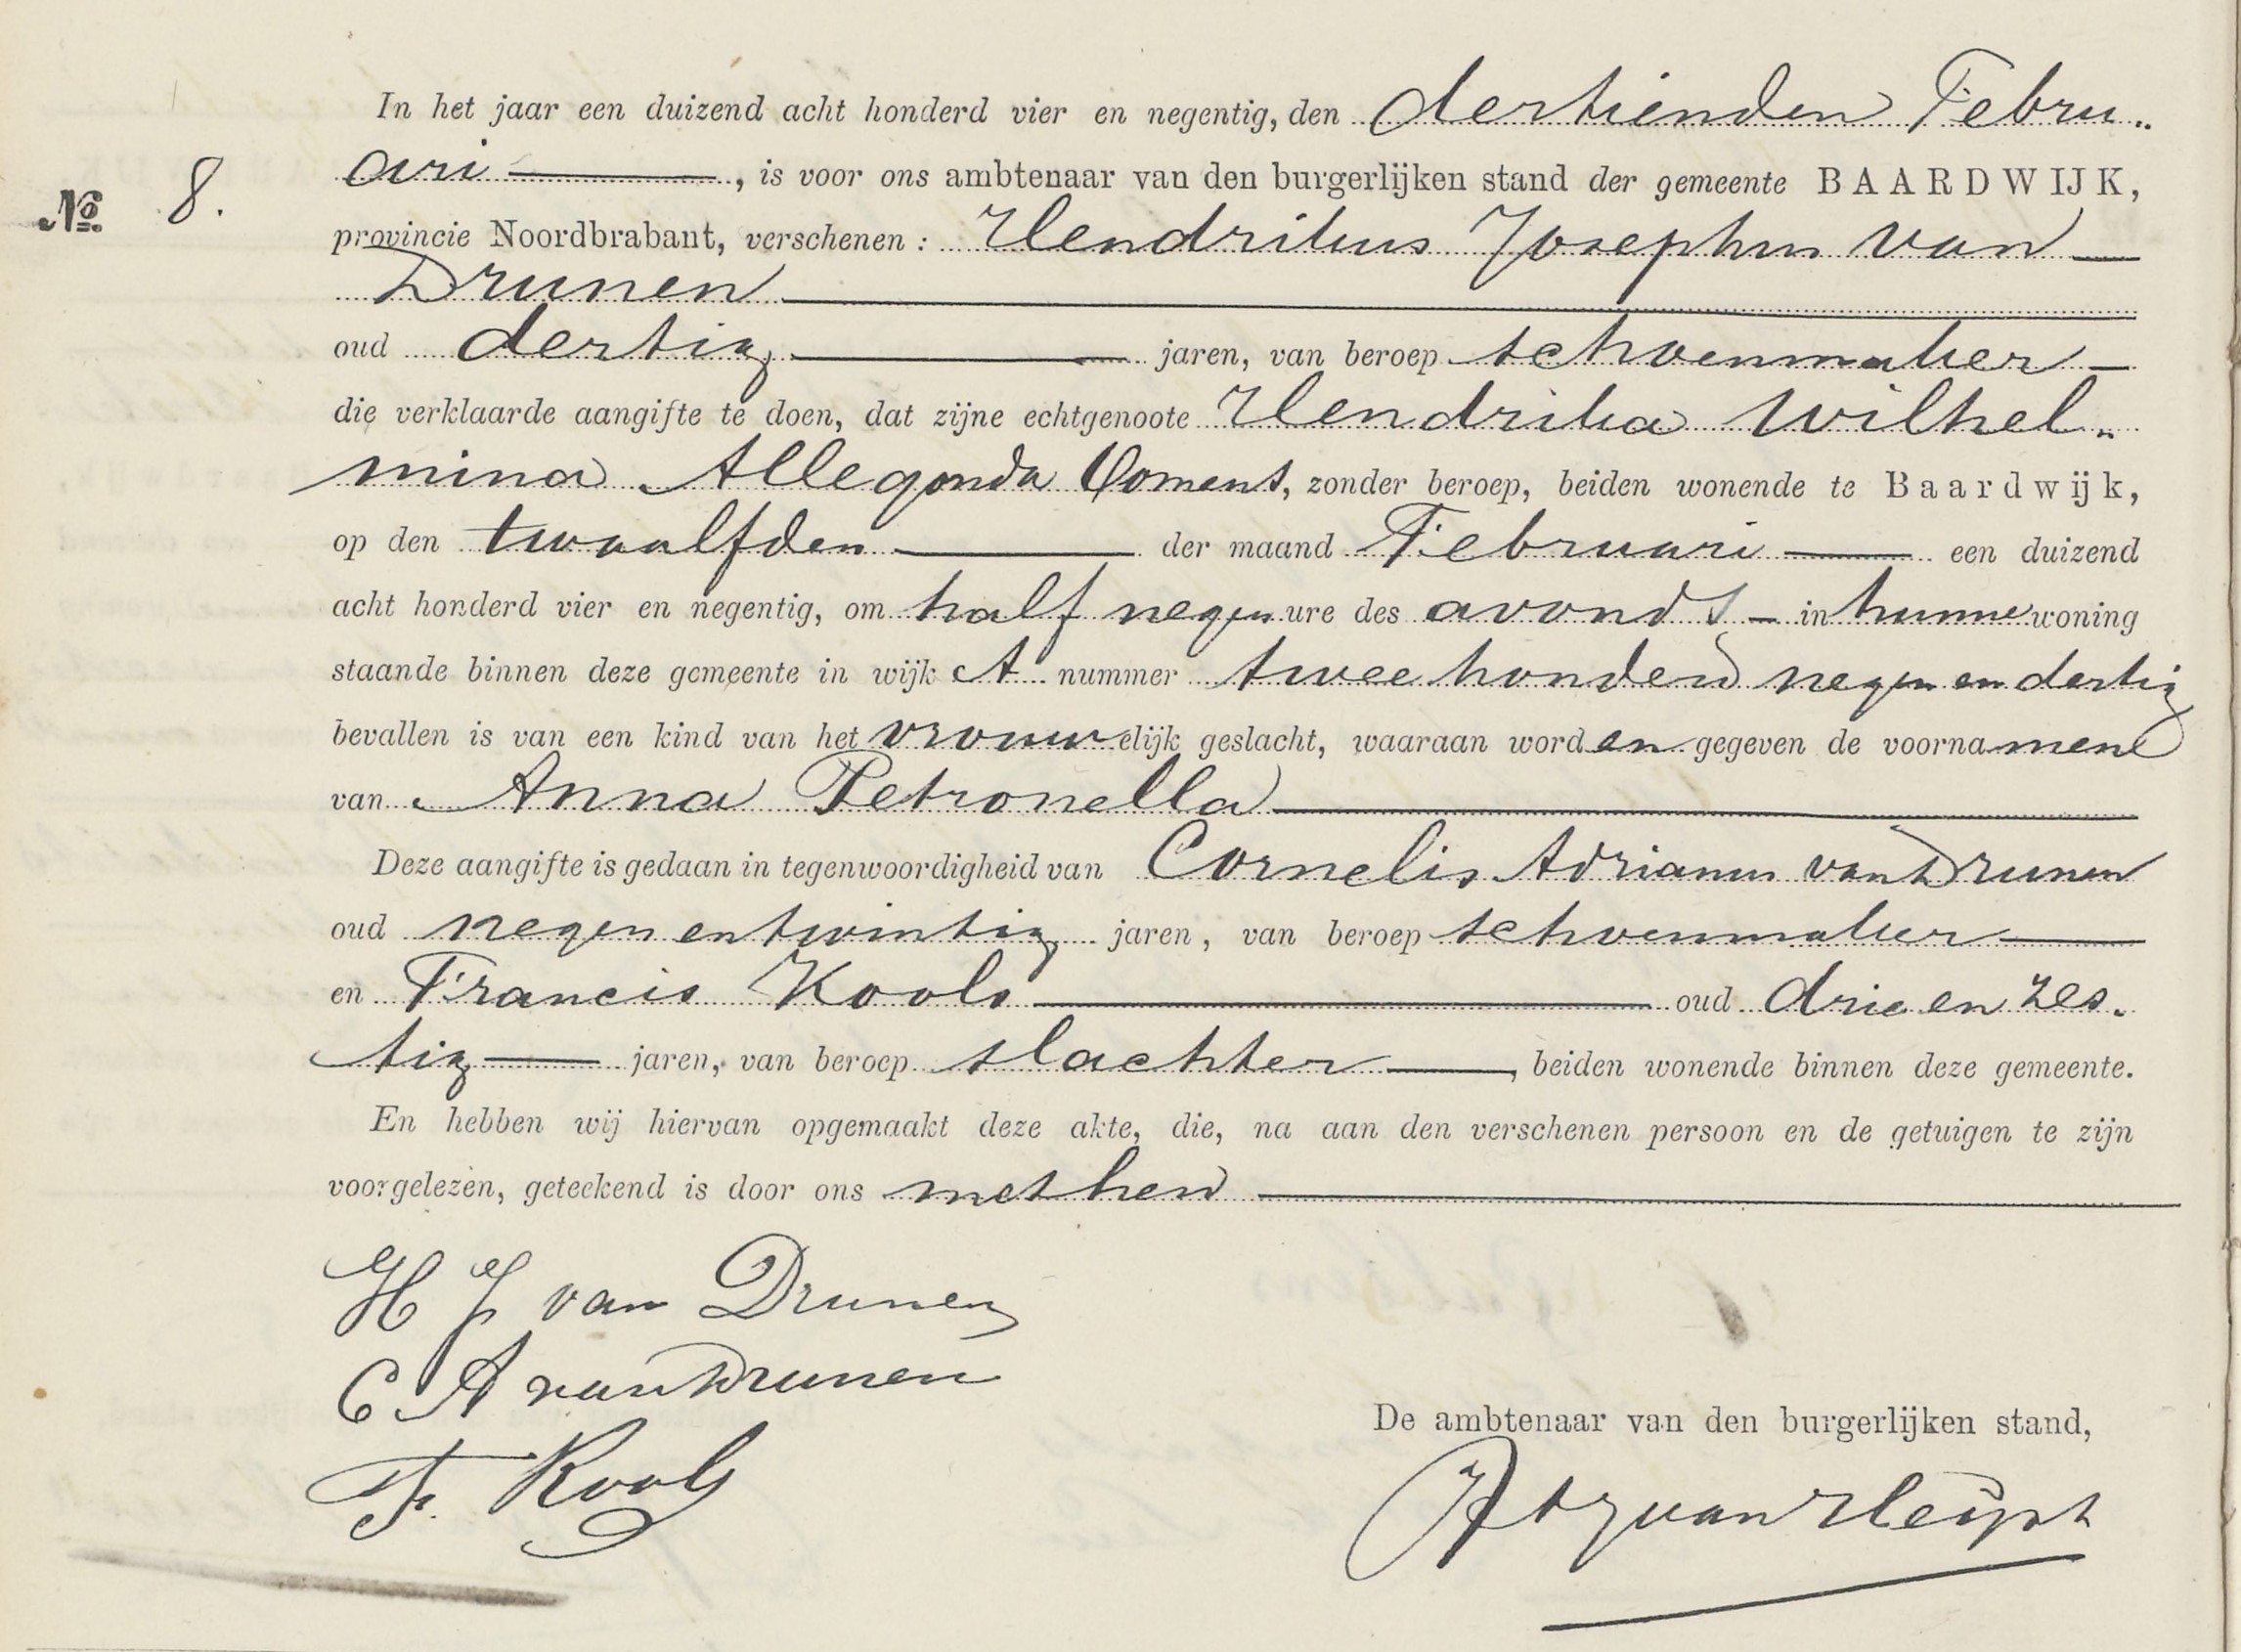 In het jaar een duizend acht honderd vier en negentig, den dertienden Febru„
ari, is voor ons ambtenaar van den burgerlijken stand der gemeente BAARDWIJK,
No. 8.
provincie Noordbrabant, verschenen: Hendrikus Josephus van
Drunen
oud dertig jaren, van beroep schoenmaker
die verklaarde aangifte te doen, dat zijne echtgenoote Hendrika Wilhel„
mina Allegonda Comans, zonder beroep, beiden wonende te Baardwijk,
op den twaalfden der maand Februari een duizend
acht honderd vier en negentig, om half negen ure des avonds in hunne woning
staande binnen deze gemeente in wijk A nummer twee honderd negen en dertig
bevallen is van een kind van het vrouwelijk geslacht, waaraan worden gegeven de voornamene
van Anna Petronella
Deze aangifte is gedaan in tegenwoordigheid van Cornelis Adrianus van Drunen
oud negen en twintig jaren, van beroep schoenmaker
en Francis Kools oud drie en zes„
tig jaren, van beroep slachter, beiden wonende binnen deze gemeente.
En hebben wij hiervan opgemaakt deze akte, die, na aan den verschenen persoon en de getuigen te zijn
voorgelezen, geteekend is door ons met hen
H J van Drunen
C A van Drunen
F. Kools
De ambtenaar van den burgerlijken stand,
van Heijst